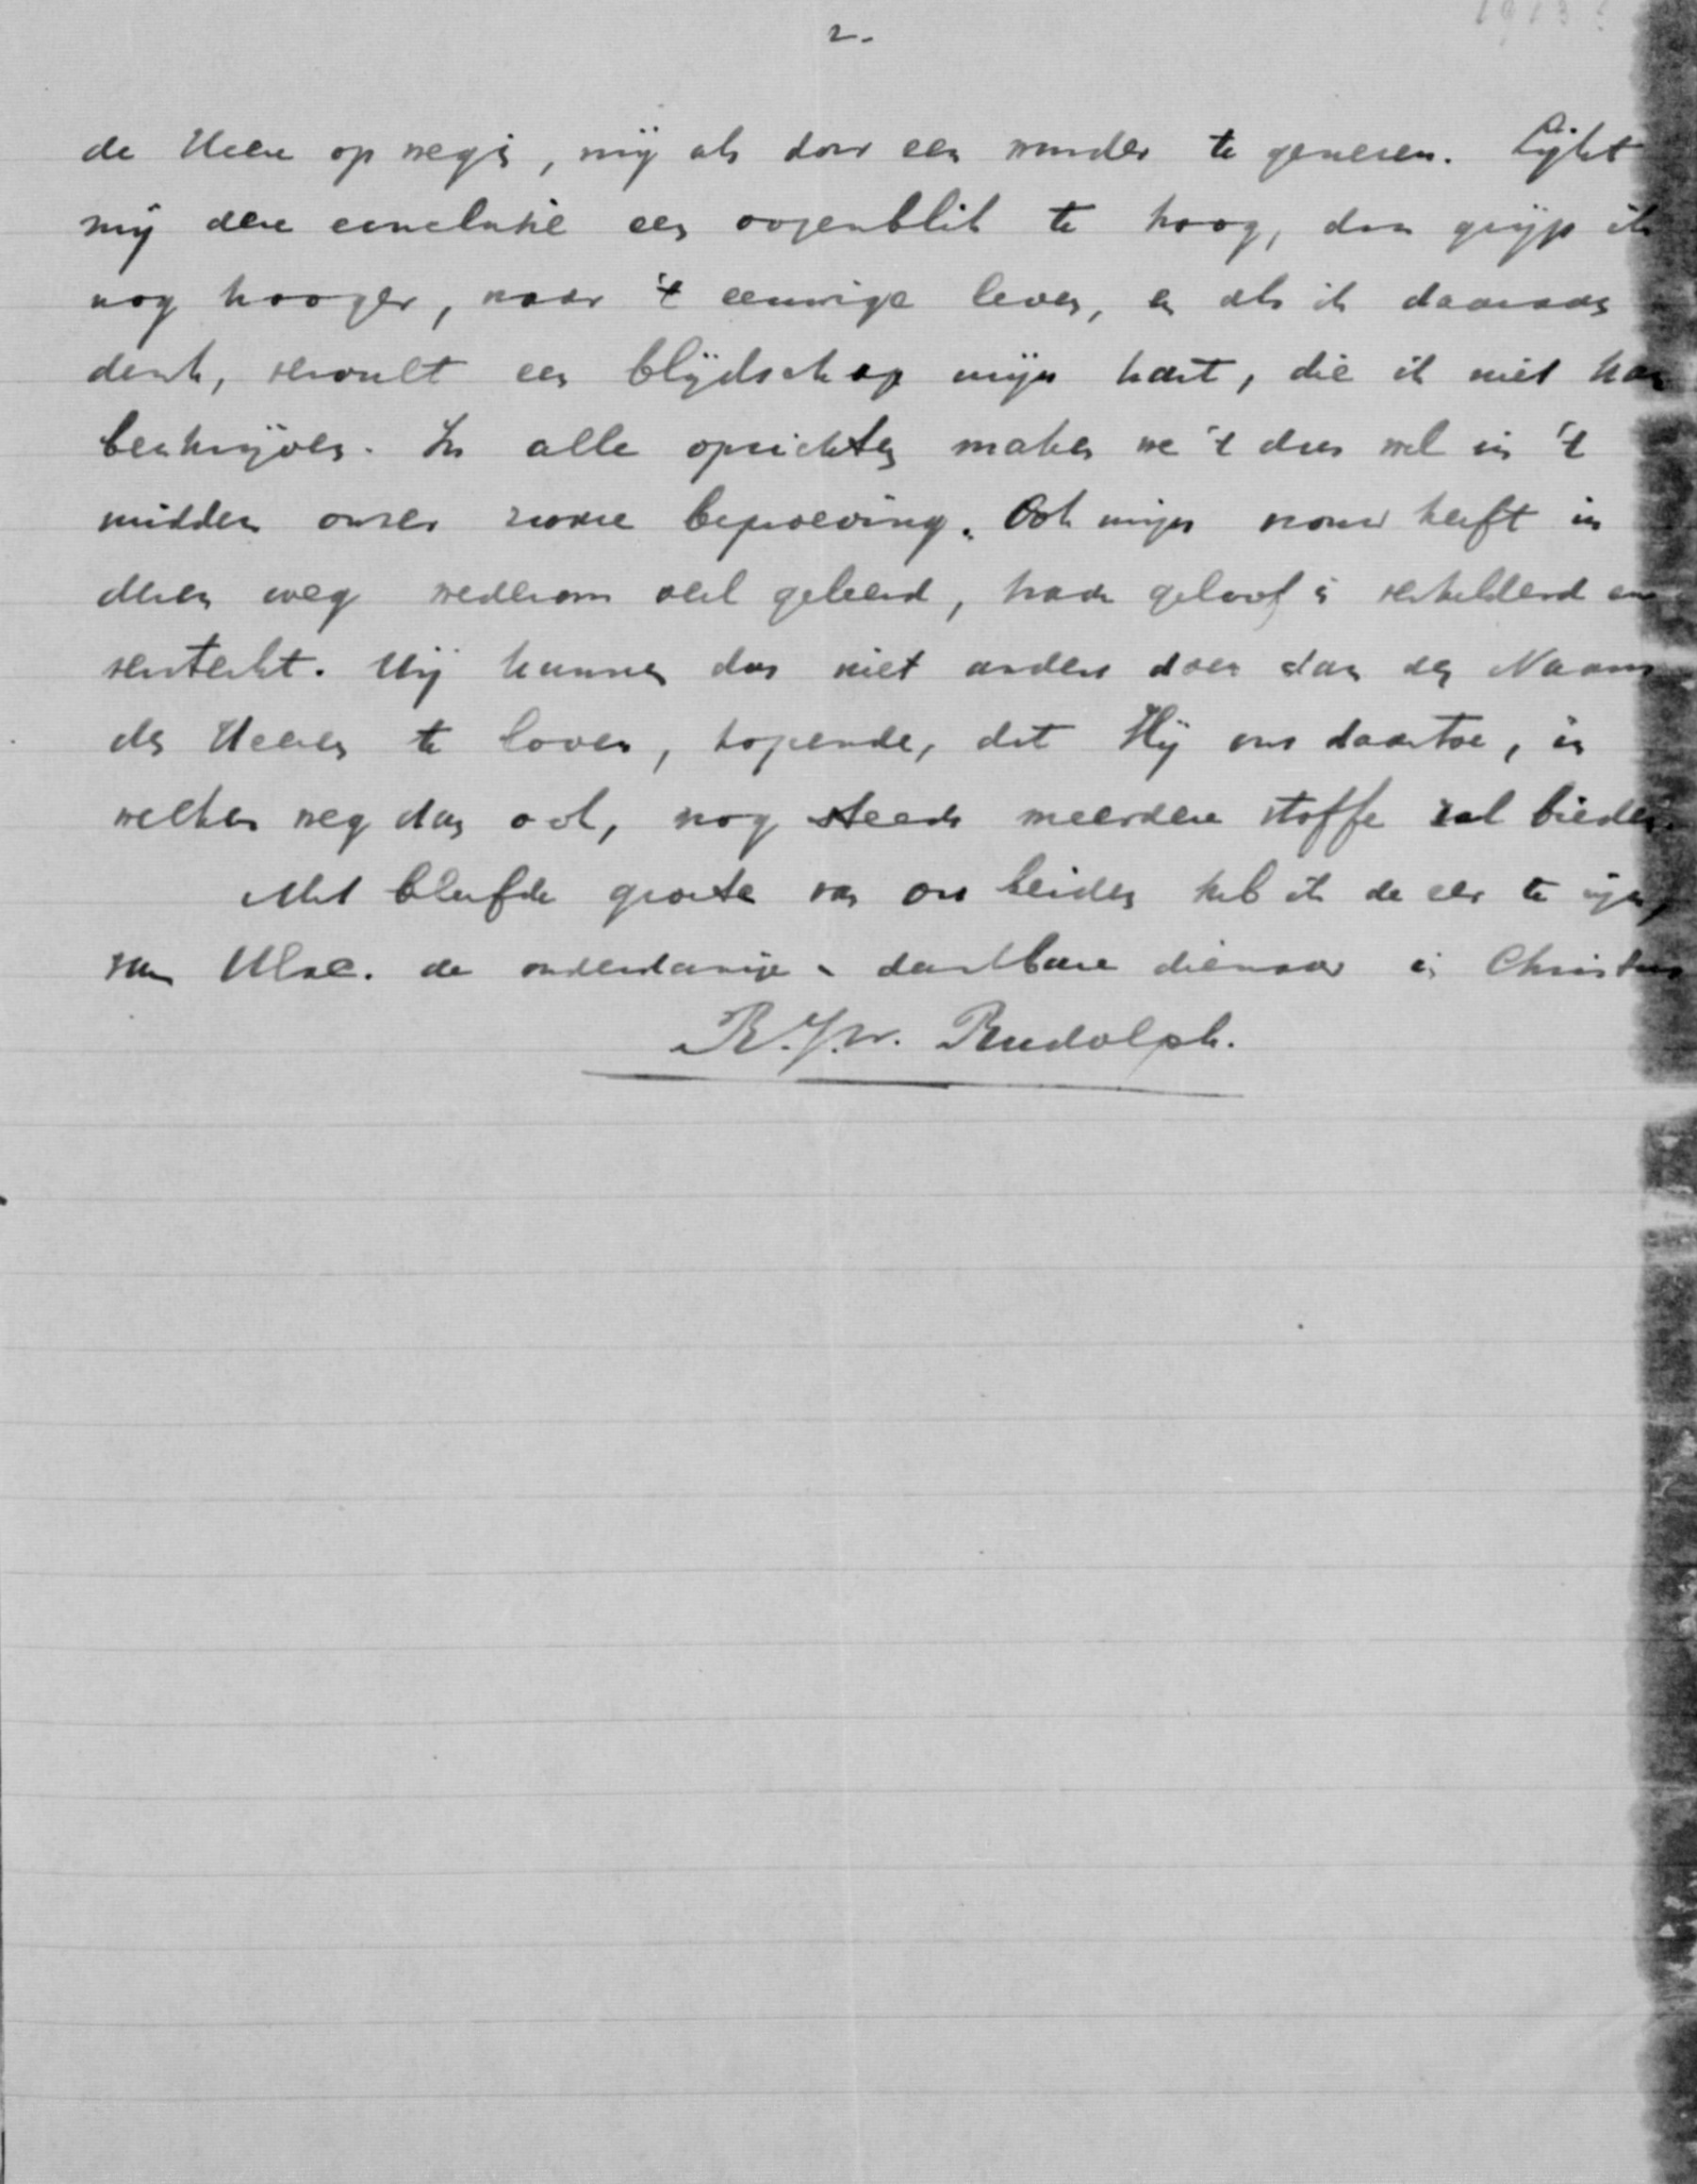 1913?
2.-
de Heere op weg is, mij als door een wonder te genezen. Lijkt
mij deze conclusie een oogenblik te hoog, dan grijp ik
nog hooger, naar 't eeuwige leven, en als ik daaraan
denk, vervult een blijdschap mijn hart, die ik niet kan
beschrijven. In alle opzichten maken we 't dus wel in 't
midden onzer zware beproeving. Ook mijn vrouw heeft in
dezen weg wederom veel geleerd, haar geloof is verhelderd en
versterkt. Wij kunnen dus niet anders doen dan den Naam
des Heeren te loven, hopende, dat Hij ons daartoe, in
welken weg dan ook, nog steeds meerdere stoffe zal bieden.
Met beleefde groete van ons beiden heb ik de eer te zijn,
van UEw. de onderdanige en dankbare dienaar in Christus
R.J.W. Rudolph.